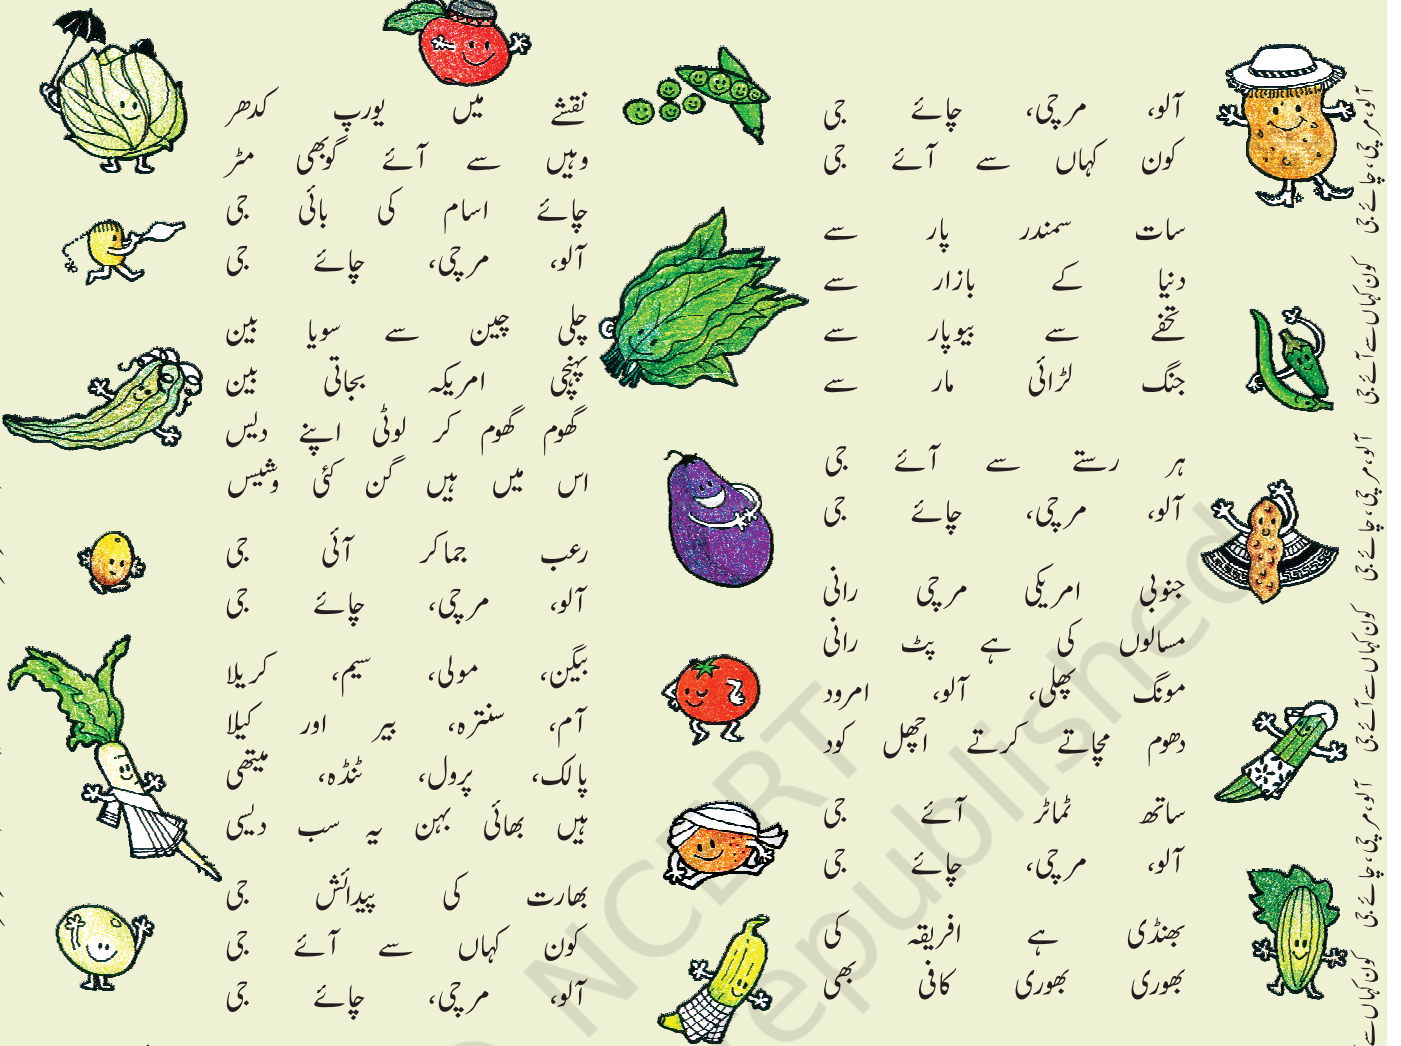 آلو، مرچی، چائے جی
کون کہاں سے آئے جی
سات سمندر پار سے
دنیا کے بازار سے
تحفے سے بیوپار سے
جنگ لڑائی مار سے
ہر رستے سے آئے جی
آلو، مرچی، چائے جی
جنوبی امریکی مرچی رانی
مسالوں کی ہے پٹ رانی
مونگ پھلی، آلو، امرود
دھوم مچاتے کرتے اچھل کود
ساتھ ٹماٹر آئے جی
آلو، مرچی، چائے جی
بھنڈی ہے افریقہ کی
بھوری بھوری کافی بھی
نقشے میں یورپ کدھر
وہیں سے آئے گوبھی مٹر
چائے اسام کی بائی جی
آلو، مرچی، چائے جی
چلی چین سے سویا بین
پہنچی امریکہ بجاتی بین
گھوم گھوم کر لوٹی اپنے دیس
اس میں ہیں گن کئی وشیس
رعب جماکر آئی جی
آلو، مرچی، چائے جی
بیگن، مولی، سیم، کریلا
آم، سنترہ، بیر اور کیلا
پالک، پرول، ٹنڈہ، میتھی
ہیں بھائی بہن یہ سب دیسی
بھارت کی پیدائش جی
کون کہاں سے آئے جی
آلو، مرچی، چائے جی
آلو، مرچی، چائے جی کون کہاں سے آئے جی آلو، مرچی، چائے جی کون کہاں سے آئے جی آلو، مرچی، چائے جی کون کہاں سے
NCERT
republished